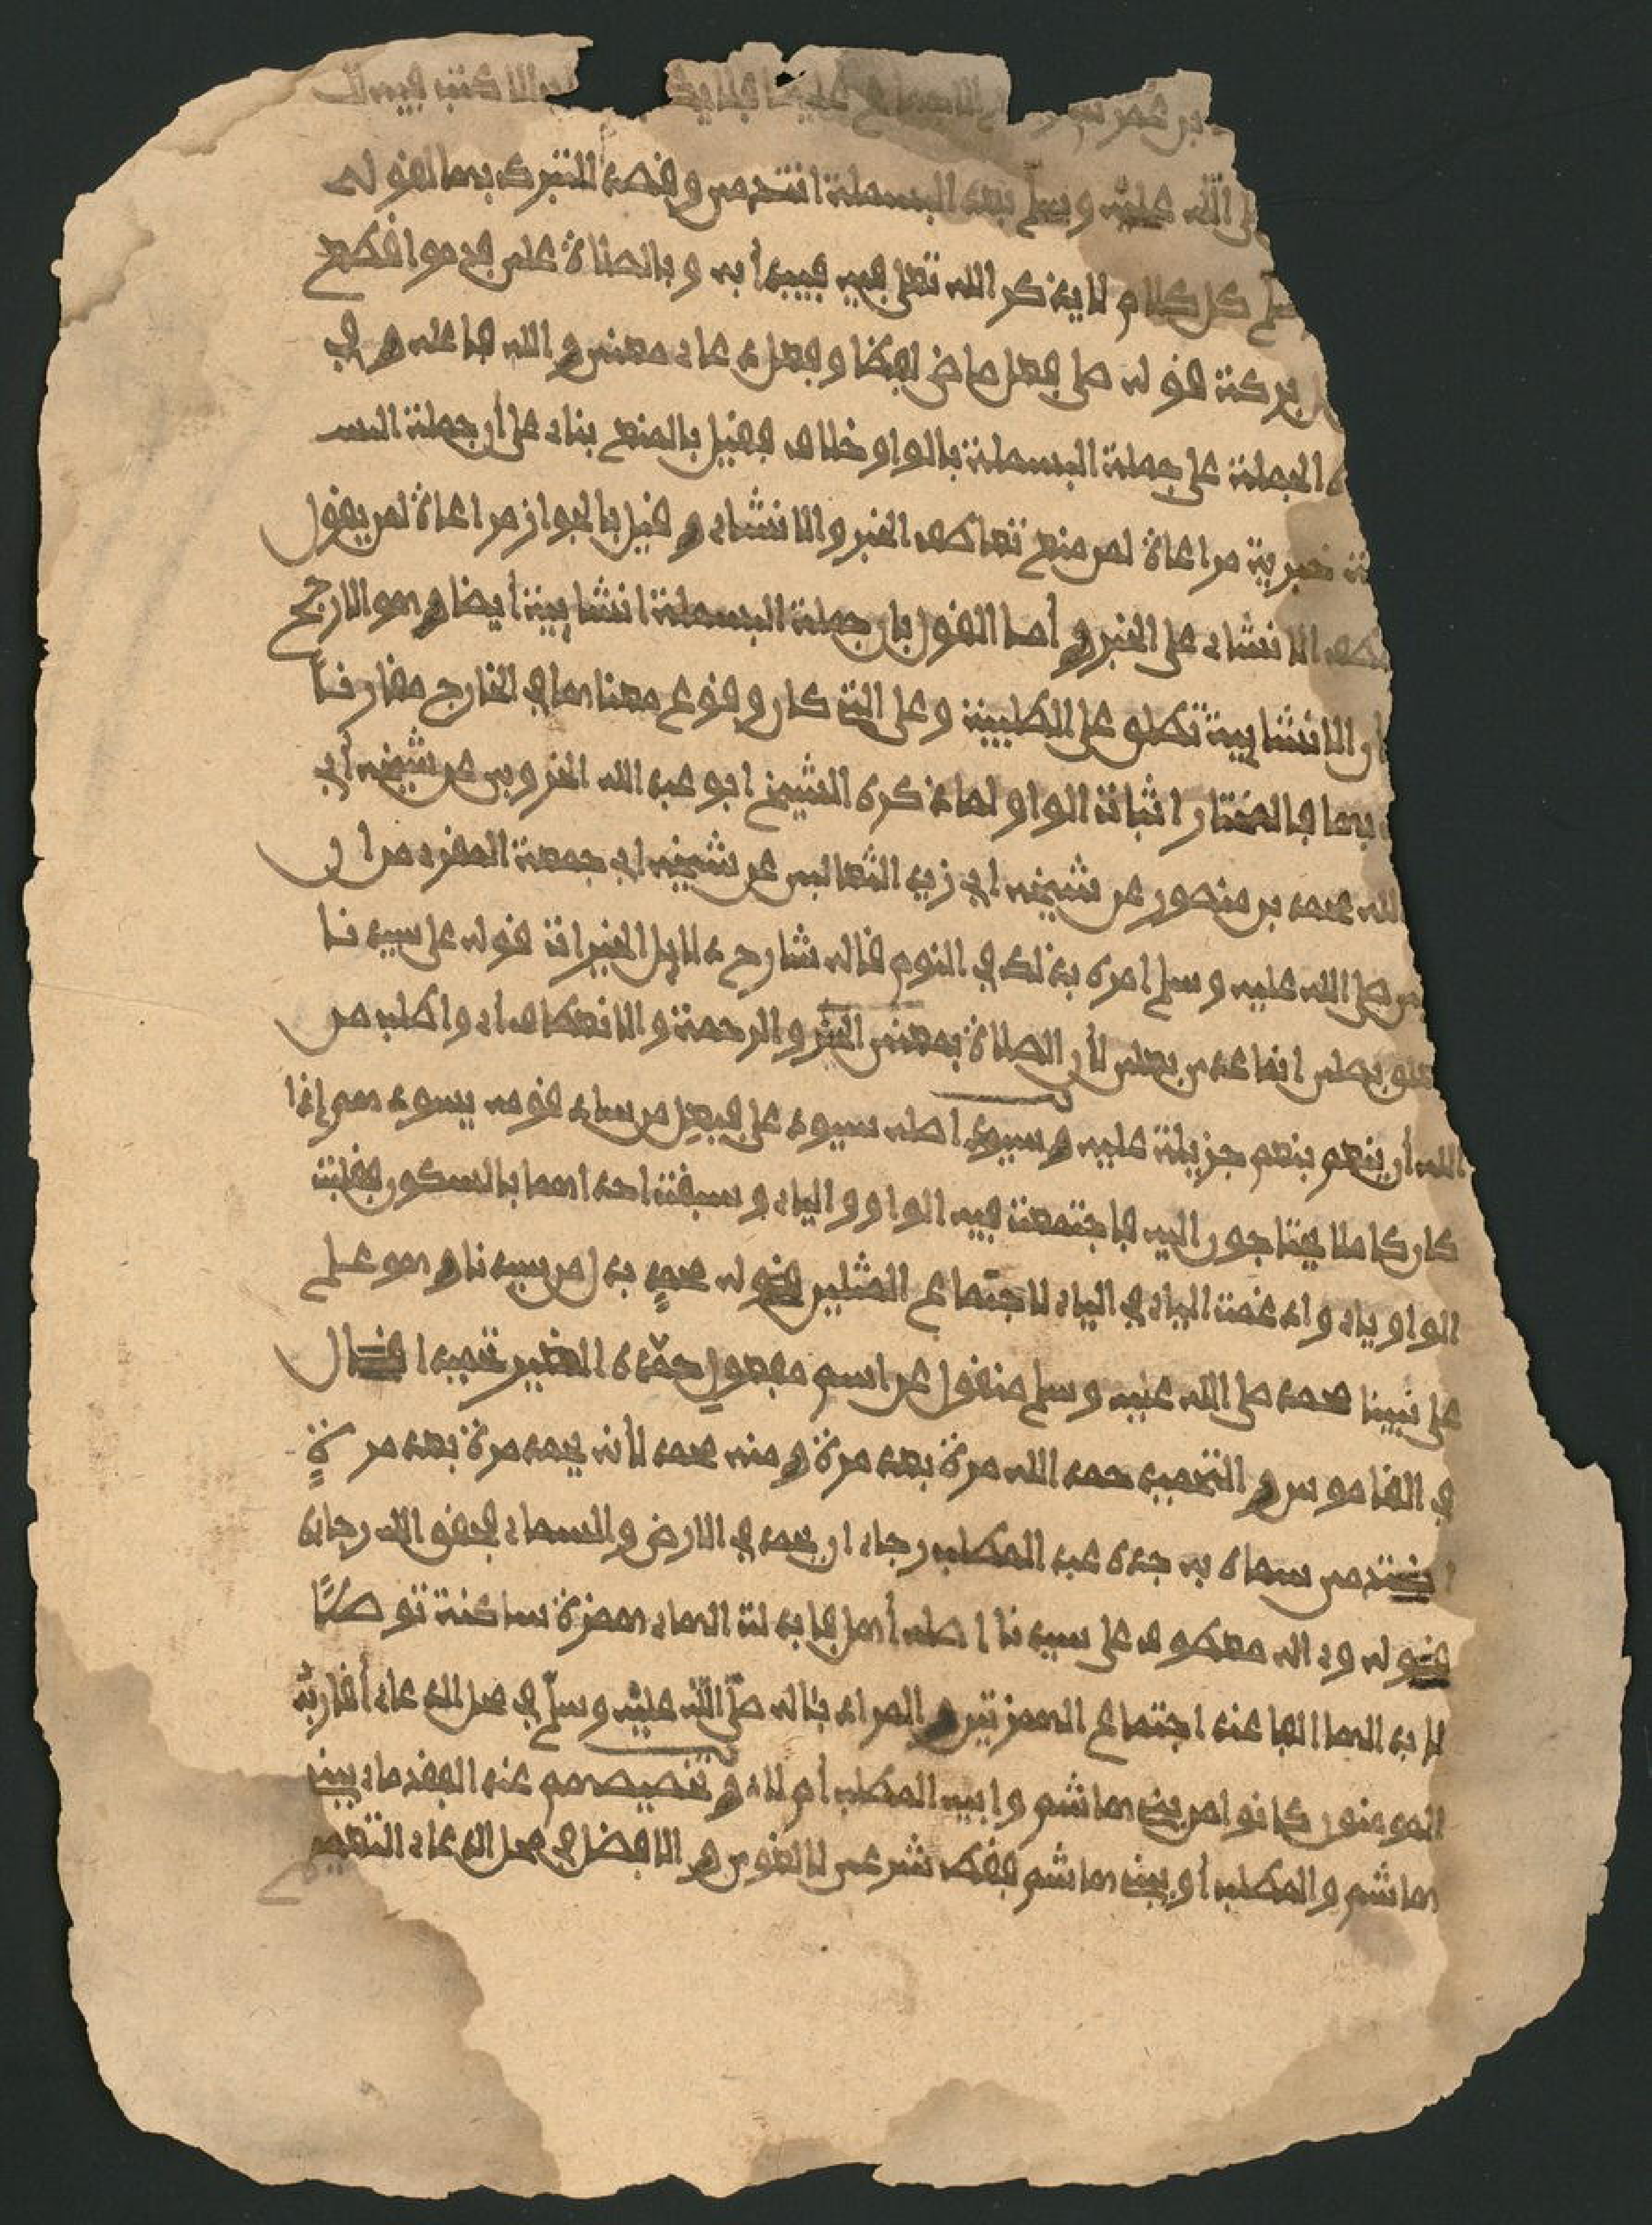 بن عمر الاجماع عليها فلا يكتب فيه ال
الله عليه وسلم بعد البسملة اقتدمى وقصد للتبرك بهما لقوله
كل كلام لا يذكر الله تعلى فيه فيبدأ به وبالصلاة على فهو اقطع
بركة قوله صلى فعل ماضى لفظا وفعل دعاء معنى والله فاعله وفي
الجملة على جملة البسملة بالواو خلاف فقيل بالمنع بناء على أن جملة البسـ
خبرية مراعاة لمن منع تعاطف الخبر والانشاء وقيل بالجواز مراعاة لمن يقول
الانشاء على الخبر وأما القول بان جملة البسملة انشايية أيضا وهو الارجح
الانشايية تطلق على الطلبية وعلى التى كان وقوع معناها في الخارج مقارنا
بها فالمختار اثبات الواو لما ذكره الشيخ ابو عبد الله الخروبى عن شيخه أبي
الله محمد بن منصور عن شيخه ابي زيد الثعالبى عن شيخه ابى جمعة المقرء من ان
صلى الله عليه وسلم امره بذلك في النوم قاله شارح دلايل الخيرات قوله على سيدنا
بصلى انما عدى بعلى لأن الصلاة بمعنى الخير والرحمة والانعطاف أى واطلب من
الله أن ينعم بنعم جزيلة عليه وسيد اصله سيود على فيعل من ساد قومه يسود هم إذا
كان كاملا يحتاجون اليه فاجتمعت فيه الواو والياء وسبقت احداهما بالسكون فقلبت
الواو ياء وادغمت الياء في الياء لاجتماع المثلين قوله محمد بدل من سيدنا وهو علم
على نبينا محمد صلى الله عليه وسلم منقول عن اسم مفعول حمده الغير تحميدا قال
في القاموس والتحميد حمد الله مرة بعد مرة ومنه محمد لأنه يحمد مرة بعد مرة
سماه به جده عبد المطلب رجاء ان يحمد في الارض والسماء فحقق الله رجاءه
قوله وءاله معطوف على سيدنا اصله أهل فابدلت الهاء همزة ساكنة توصلا
لابدالها الفا عند اجتماع الهمزتين والمراد بئاله صلى الله عليه وسلم في محل الدعاء أقاربه
المومنون كانوا من بنى هاشم وابيه المطلب أم لا وتخصيصهم عند الفقهاء ببنى
هاشم والمطلب أو ببنى هاشم فقط شرعى لا لغوى والافضل في محل الدعاء التعميم